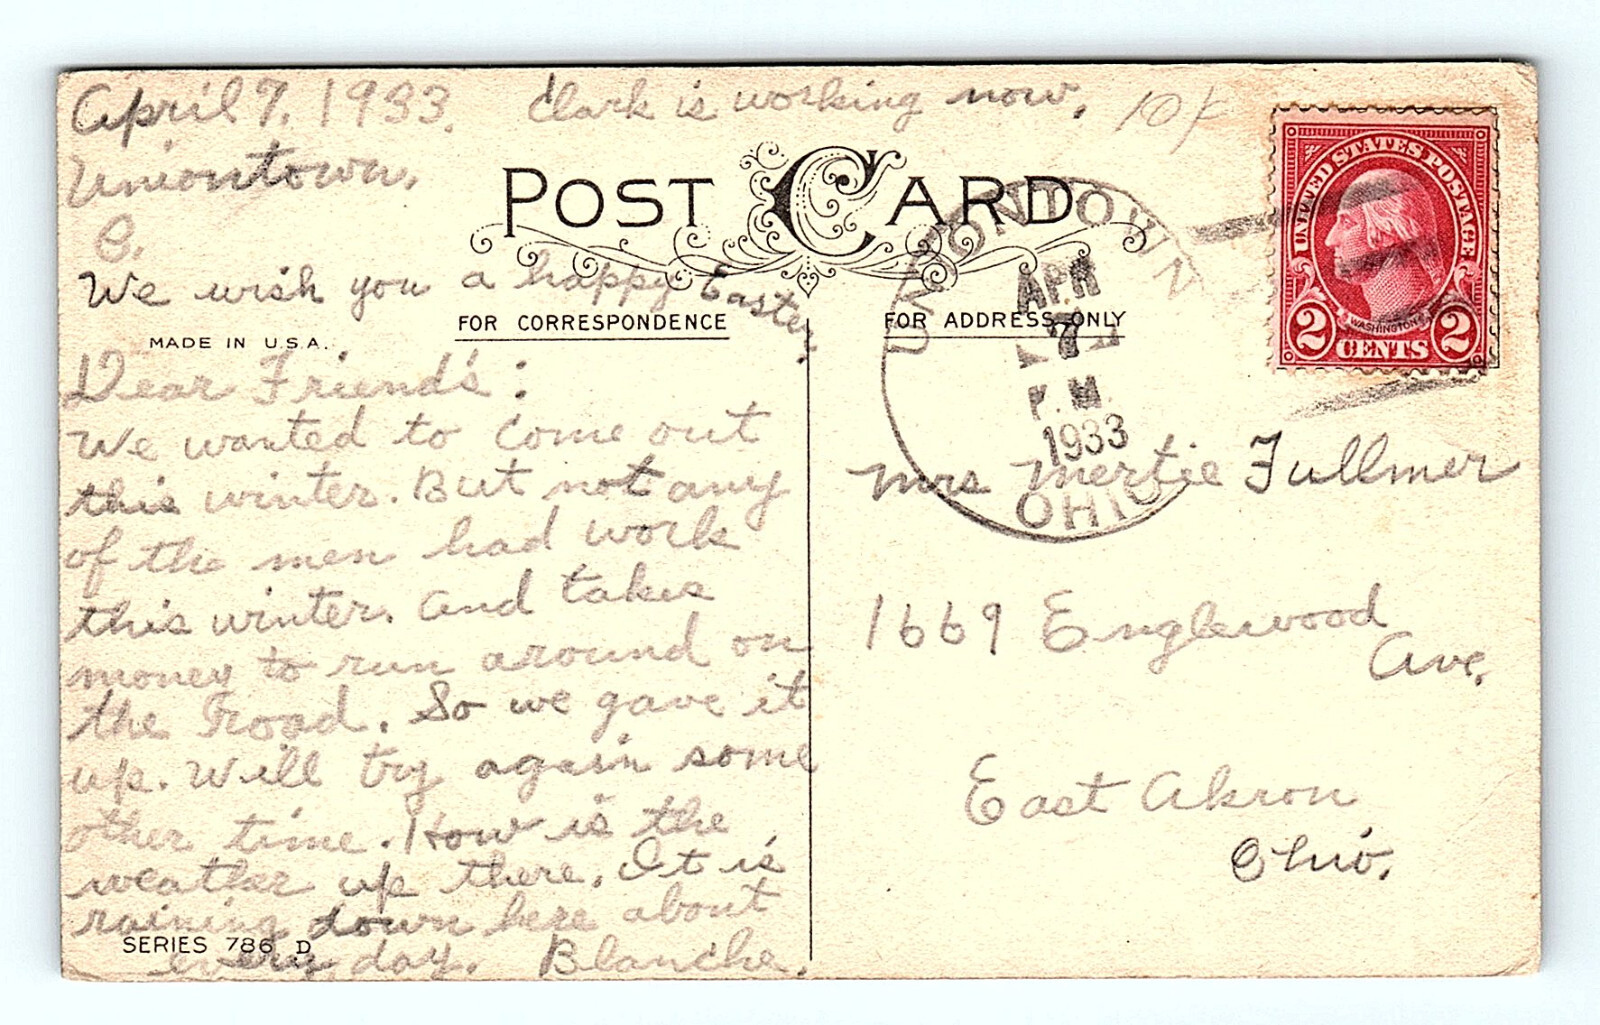 April 7, 1933. Clark is working now. 10¢
Uniontown,
O.
POST CARD
UNIONTOWN
APR
7
P.M.
1933
OHIO
UNITED STATES POSTAGE
WASHINGTON
2 CENTS 2
We wish you a happy Easter.
FOR CORRESPONDENCE
FOR ADDRESS ONLY
MADE IN U.S.A.
Dear Friend's:
We wanted to come out
this winter. But not any
of the men had work
this winter. And takes
money to run around on
the Troad. So we gave it
up. Will try again some
other time. How is the
weather up there. It is
raining down here about
every day. Blanche.
SERIES 786 D
Mrs Mertie Fullmer
1669 Englewood
Ave.
East Akron
Ohio.